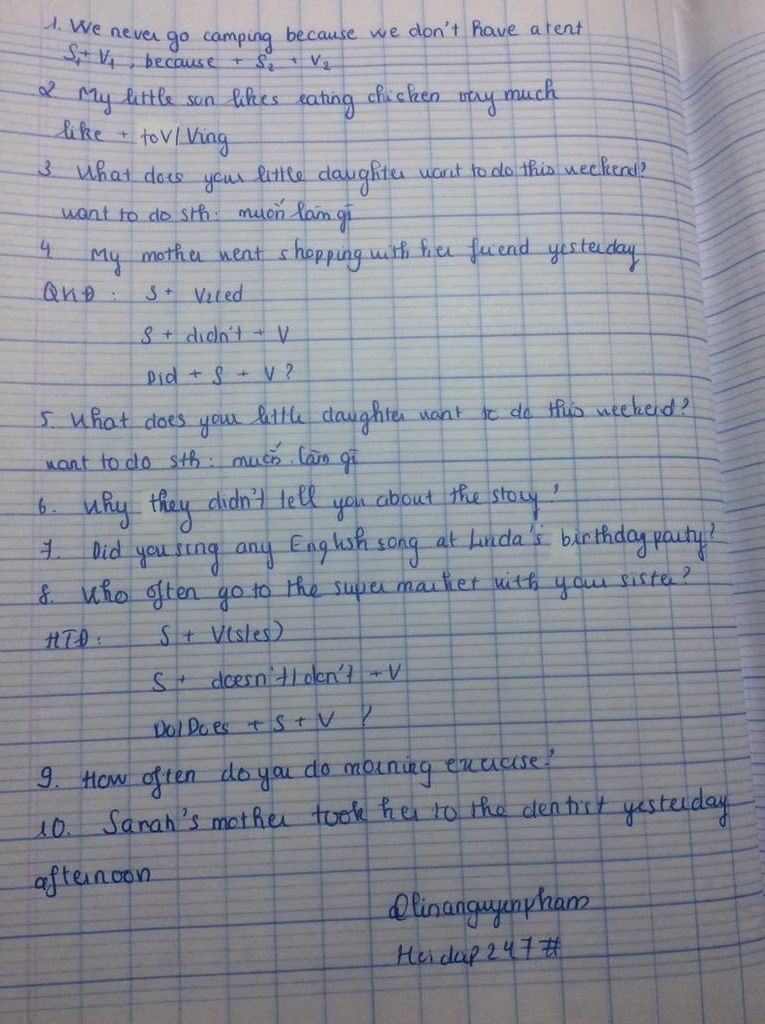 1. We never go camping because we don't have a tent
S1 + V1, because + S2 + V2
2 My little son likes eating chicken very much
like + toV/Ving
3 What does your little daughter want to do this weekend?
want to do sth: muốn làm gì
4 My mother went shopping with her friend yesterday
QKĐ: S + V2/ed
S + didn't + V
Did + S + V?
5 What does your little daughter want to do this weekend?
want to do sth: muốn làm gì
6. Why they didn't tell you about the story?
7. Did you sing any English song at Linda's birthday party?
8. Who often go to the supermarket with your sister?
HTĐ: S + V(s/es)
S + doesn't/don't + V
Do/Does + S + V?
9. How often do you do morning exercise?
10. Sarah's mother took her to the dentist yesterday
afternoon
@linanguyenpham
Hoidap247#